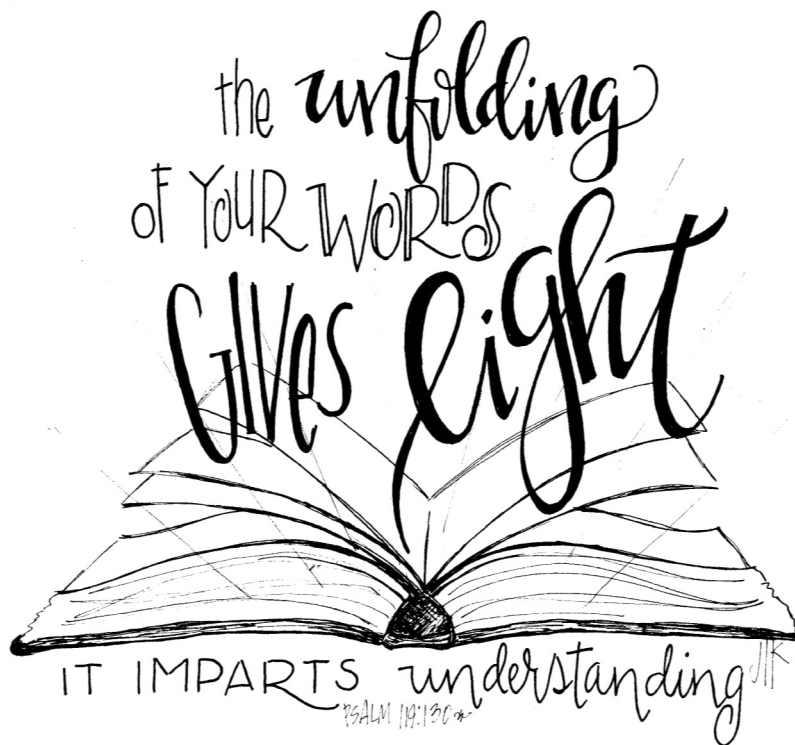 the unfolding
of YOUR WORDS
GIVes light
IT IMPARTS understanding
PSALM 119:130